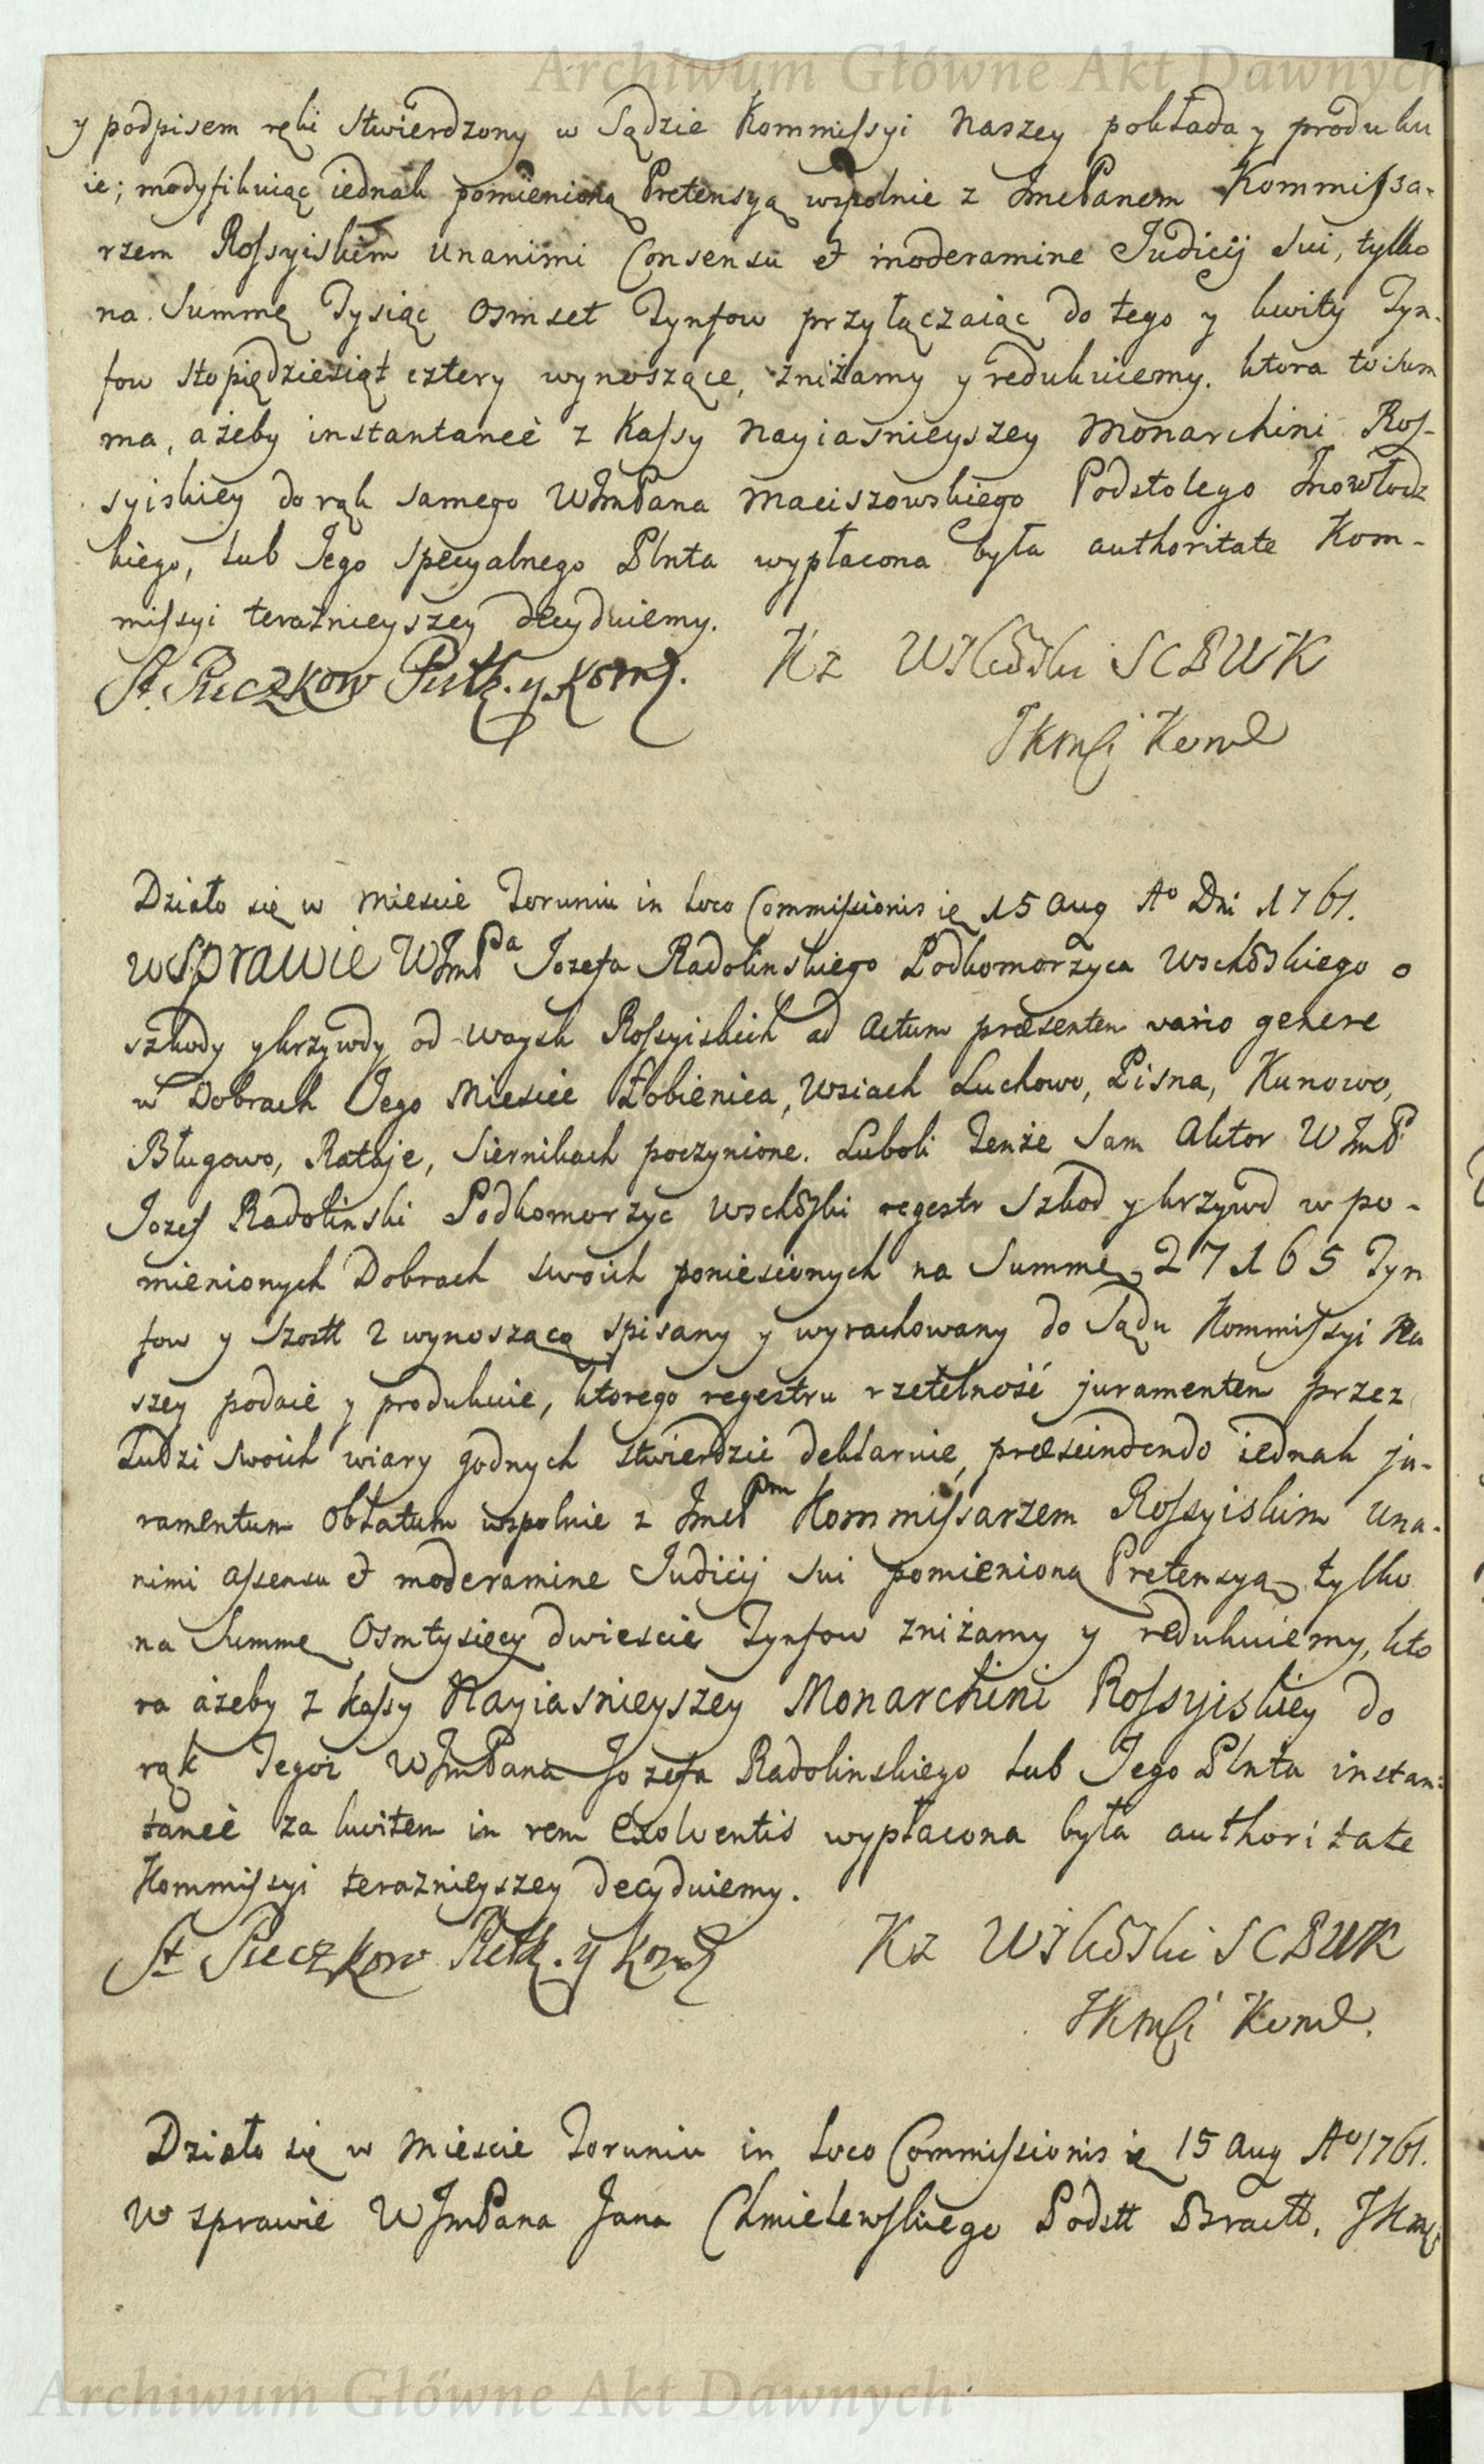 Archiwum Główne Akt Dawnych
y podpisem ręki stwierdzony w Sądzie Kommissyi Naszey pokłada y produku
ie; modyfikuiąc iednak pomienioną Pretensyą wspolnie z JmcPanem Kommissa-
rzem Rossyiskim unanimi Consensu et moderamine Judicij Sui, tylko
na Summę Tysiąc Osmset Tynfow przyłączaiąc do tego y kwity Tyn-
fow sto piędziesiąt cztery wynoszące, zniżamy y redukuiemy. ktora to sum
ma, ażeby instantaneè z Kassy Nayiasnieyszey Monarchini Ros-
syiskiey do rąk samego WJmPana Maciszowskiego Podstolego Inowłodz
kiego, lub Jego specyalnego Plnta wypłacona była authoritate Kom-
missyi teraznieyszey decyduiemy.
St. Pieczkow Putk. y Kom. Kz SCBWK
Działo się w Miescie Toruniu in Loco Commissionis ię 15 Aug Aº Dni 1761.
W Sprawie WJmPa Jozefa Radolinskiego Podkomorzyca Wschōskiego o
szkody y krzywdy od Woysk Rossyiskich ad Actum præsentem vario genere
w Dobrach Jego Miescie Łobienica, Wsiach Luchowo, Pisna, Kunowo,
Bługowo, Rataje, Siernikach poczynione. Luboli Tenże Sam Aktor WJmP
Jozef Radolinski Podkomorzyc Wschōski regestr Szkod y krzywd w po-
mienionych Dobrach swoich poniesionych na Summę 27165 Tyn
fow y Szostt 2 wynoszącą spisany y wyrachowany do Sądu Kommissyi Na
szey podaie y produkuie, ktorego regestru rzetelność juramentem przez
Ludzi swoich wiary godnych stwierdzić deklaruie, præscindendo iednak ju-
ramentum oblatum wspolnie z JmcPm Kommissarzem Rossyiskim una-
nimi assensu et moderamine Judicij Sui pomienioną Pretensyą tylko
na Summę Osmtysięcy dwiescie Tynfow zniżamy y redukuiemy, kto
ra ażeby z kassy Nayiasnieyszey Monarchini Rossyiskiey do
rąk Tegoż WJmPana Jozefa Radolinskiego lub Jego Plnta instan-
taneè za kwitem in rem Exolventis wypłacona była authoritate
Kommissyi teraznieyszey decyduiemy.
St Pieczkow Putk. y Kom Kz SCBWK
Działo się w Miescie Toruniu in Loco Commissionis ię 15 Aug Aº 1761.
W sprawie WJmPana Jana Chmielewskiego Podstt Bractt. JKm
Archiwum Główne Akt Dawnych